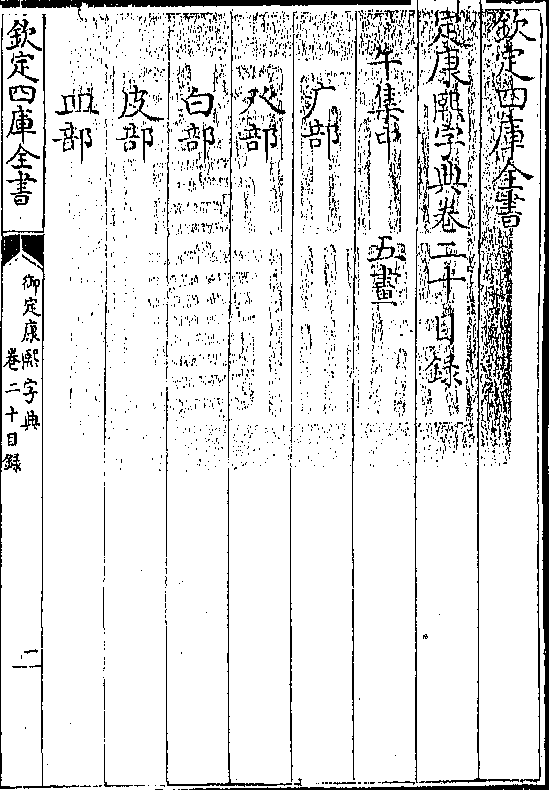 欽定四庫全書
定康熙字典卷二十目録
午集中 五畫
疒部
癶部
白部
皮部
皿部
欽定四庫全書
御定康熙字典
卷二十目録